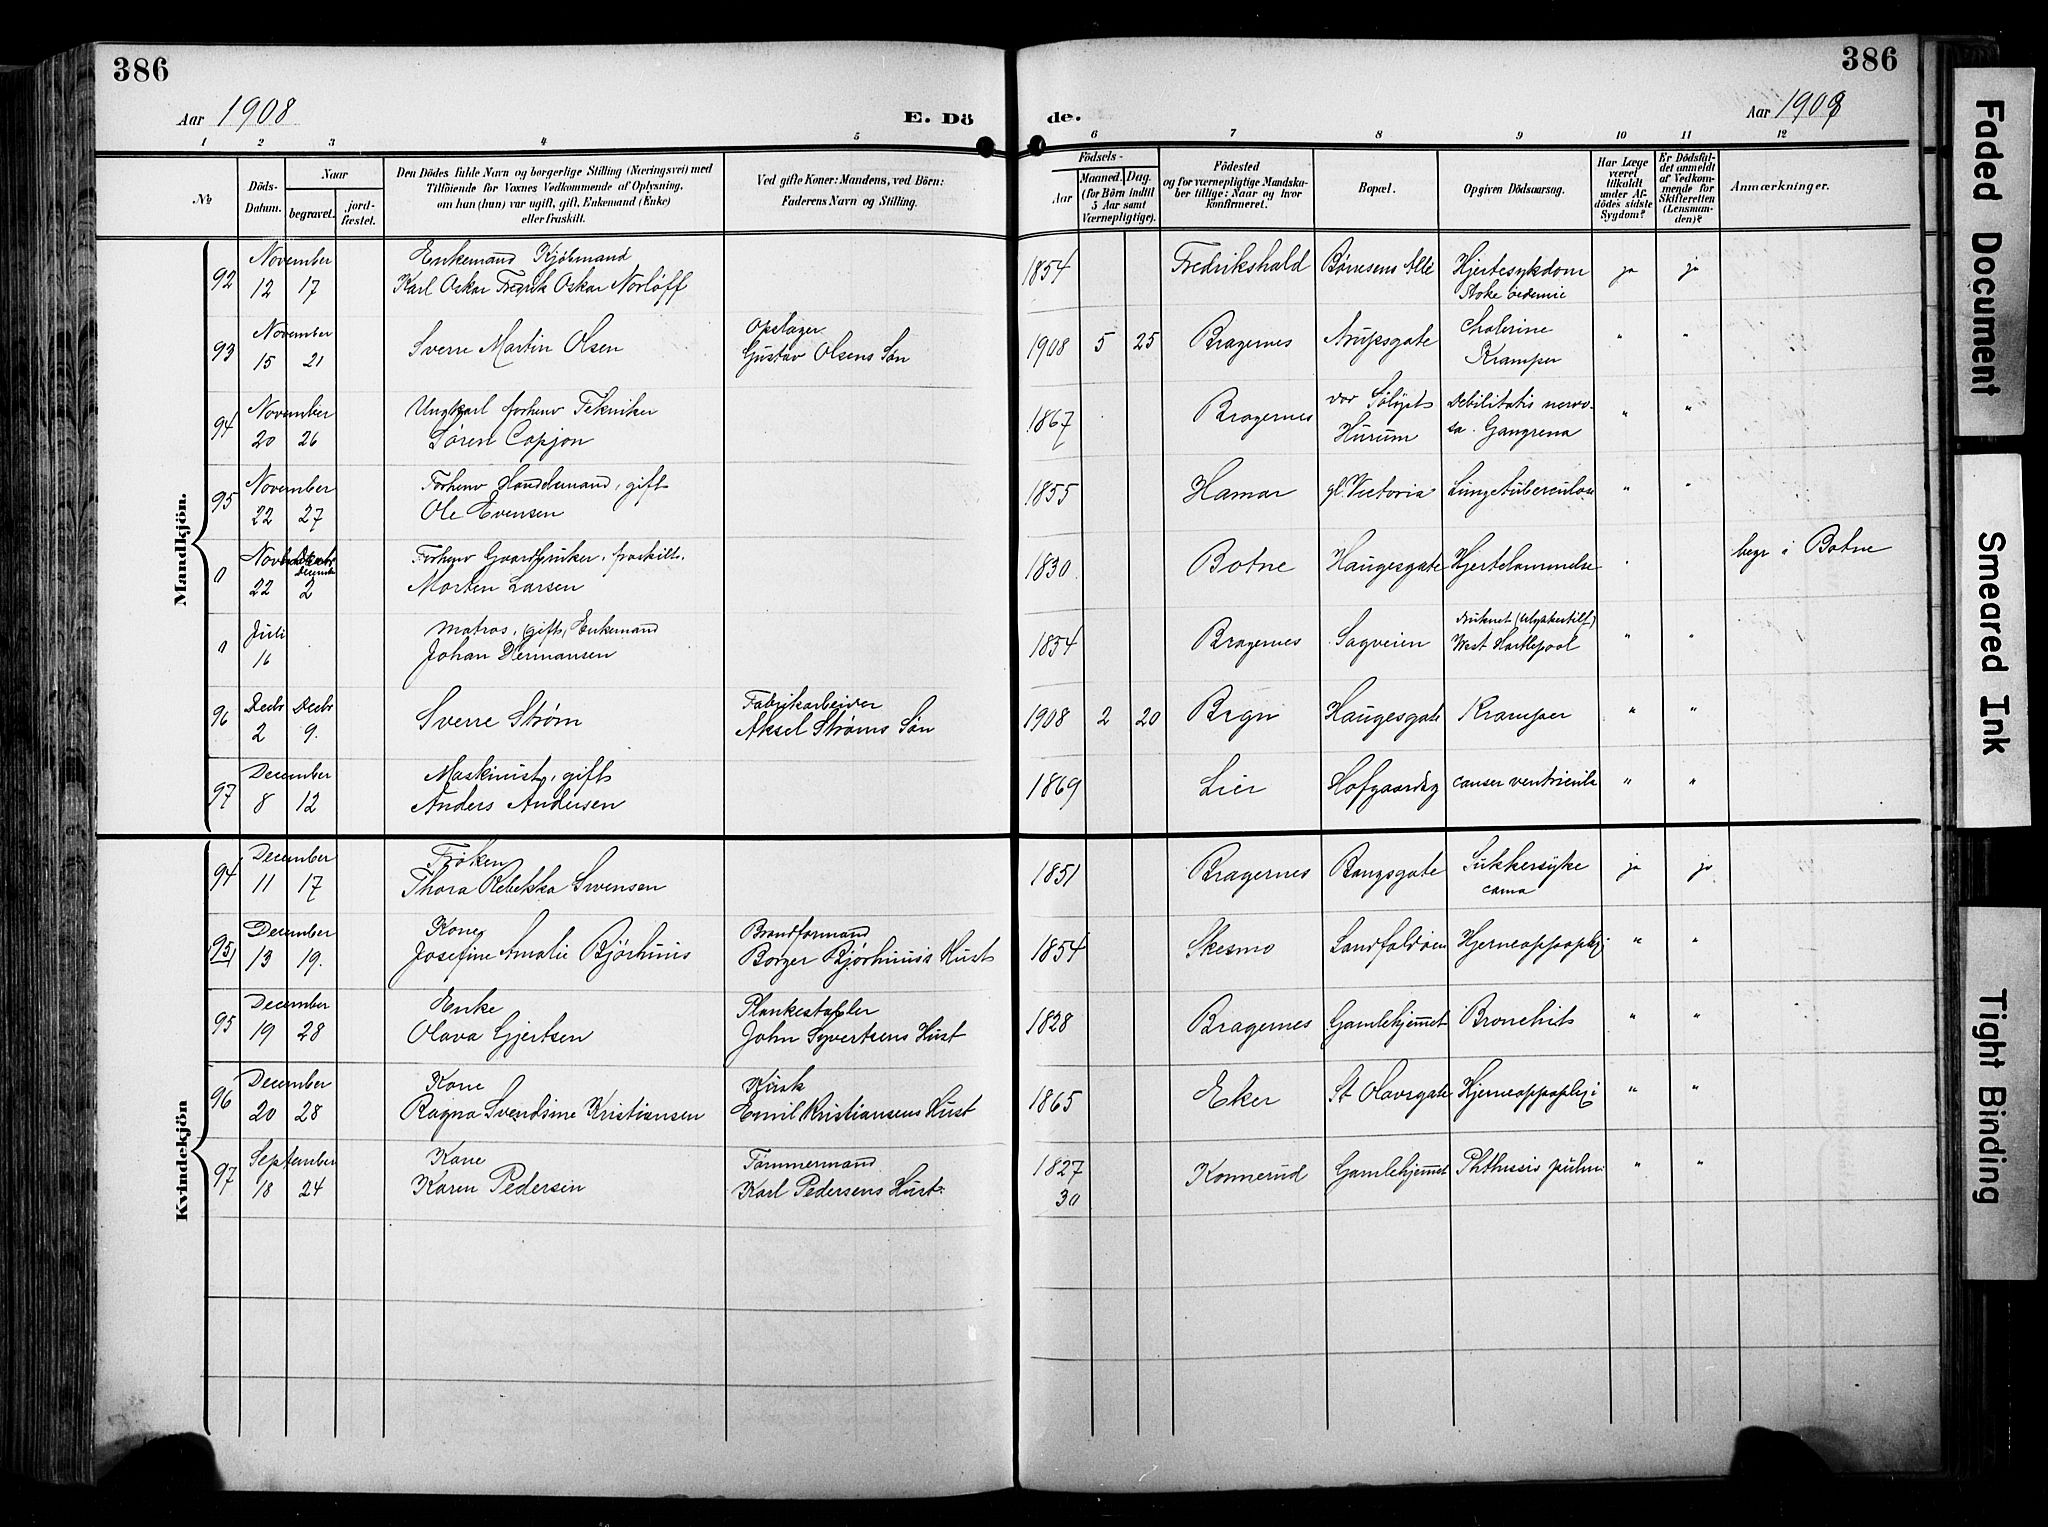 386
386
Aar 1908
E. Dö
de.
Aar 1908
1 2 3 4 5 6 7 8 9 10 11 12
№
Döds-Datum.
Naar
begravet.
jord-fæstet.
Den Dödes fulde Navn og borgerlige Stilling (Næringsvei) med
Tilföiende for Voxnes Vedkommende af Oplysning,
om han (hun) var ugift, gift, Enkemand (Enke)
eller fraskilt.
Ved gifte Koner: Mandens, ved Börn:
Faderens Navn og Stilling.
Födsels-
Aar
Maaned. Dag.
(for Börn indtil
5 Aar samt
Værnepligtige).
Födested
og for værnepligtige Mandska-
ber tillige: Naar og hvor
konfirmeret.
Bopæl.
Opgiven Dödsaarsag.
Har Læge
været
tilkaldt
under Af-
dödes sidste
Sygdom?
Er Dödsfal-
det anmeldt
af Vedkom-
mende for
Skifteretten
(Lensman-
den)?
Anmærkninger.
Mandkjön.
92 November Enkemand Kjøbmand
12 17 Karl Oskar Fredrik Oskar Norløff 1854 Fredrikshald Børresens Allé Hjertesykdom ja ja
93 November Opslager Cholerine
15 21 Sverre Martin Olsen Gustav Olsens Søn 1908 5 25 Bragernes Arupsgate Kramper " "
94 November Ungkarl forhenv Tekniker Debilitatis nervo-
20 26 Søren Copjon 1867 Bragernes Hurum sa. Gangrena " "
95 November Forhenv Handelsmand, gift
22 27 Ole Evensen 1855 Hamar gl. Victoria Lungetuberculose " "
0 Forhenv Gaardbruker, fraskilt.
22 2 Morten Larsen 1830 Botne Haugesgate Hjertelammelse begr i Botne
0 Juli Matros, (gift) Enkemand druknet (Ulykkestilf)
16 Johan Hermansen 1854 Bragernes Sagveien West Hartlepool " "
96 Decbr Decbr Fabrikarbeider
2 9. Sverre Strøm Aksel Strøms Søn 1908 2 20 Brgn Haugesgate Kramper " "
97 December Maskinist, gift
8 12 Anders Andersen 1869 Lier Hofgaardsg cancer ventriculi " "
Kvindekjön
94 December Frøken Sukkersyke
11 17 Thora Rebekka Svensen 1851 Bragernes Bangsgate coma ja ja
95 December Kone Brandformand
13 19. Josefine Amalie Bjørhuus Borger Bjørhuus's Hust 1854 Skesmo Landfaldøen Hjerneappoplexi " "
95 December Enke Plankestabler
19 28 Olava Gjertsen John Syvertsens Hust 1828 Bragernes Gamlehjemmet Bronchit " "
96 December Kone Kusk
20 28 Ragna Svendsine Kristiansen Emil Kristiansens Hust 1865 Eker St Olavsgate Hjerneappoplexi " "
97 September Kone Tømmermand
18 24 Karen Pedersen Karl Pedersens Hust. 1827 Konnerud Gamlehjemmet Phthissis pulm: " "
30
Faded Document
Smeared Ink
Tight Binding